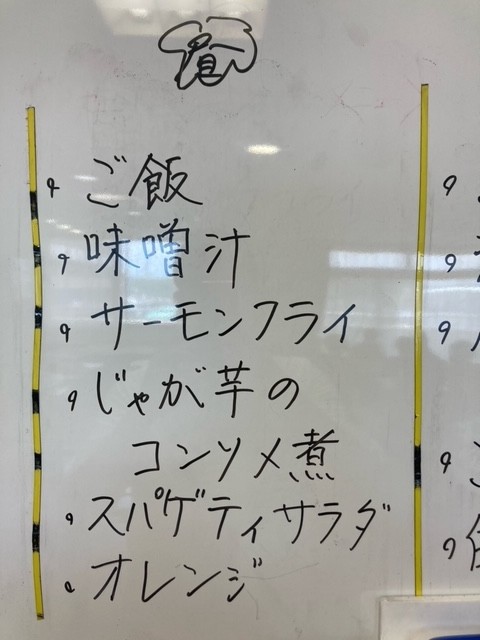 ご飯
味噌汁
サーモンフライ
じゃが芋の
コンソメ煮
スパゲティサラダ
オレンジ